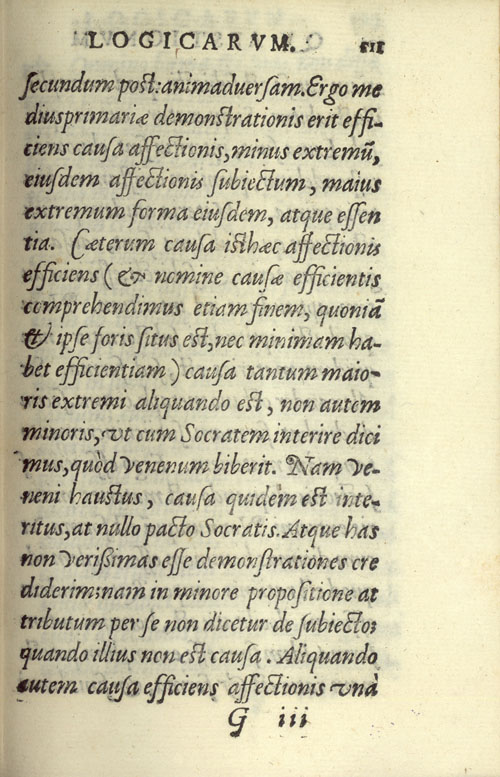 LOGICARVM. 51
secundum post: animaduersam. Ergo me
dius primariæ demonstrationis erit effi-
ciens causa affectionis, minus extremũ,
eiusdem affectionis subiectum, maius
extremum forma eiusdem, atque essen
tia. Cæterum causa isthæc affectionis
efficiens (& nomine causæ efficientis
comprehendimus etiam finem, quoniã
& ipse foris situs est, nec minimam ha-
bet efficientiam) causa tantum maio-
ris extremi aliquando est, non autem
minoris, vt cum Socratem interire dici
mus, quòd venenum biberit. Nam ve-
neni haustus, causa quidem est inte-
ritus, at nullo pacto Socratis. Atque has
non verißimas esse demonstrationes cre
diderim: nam in minore propositione at
tributum per se non dicetur de subiecto:
quando illius non est causa. Aliquando
autem causa efficiens affectionis vnà
G iii